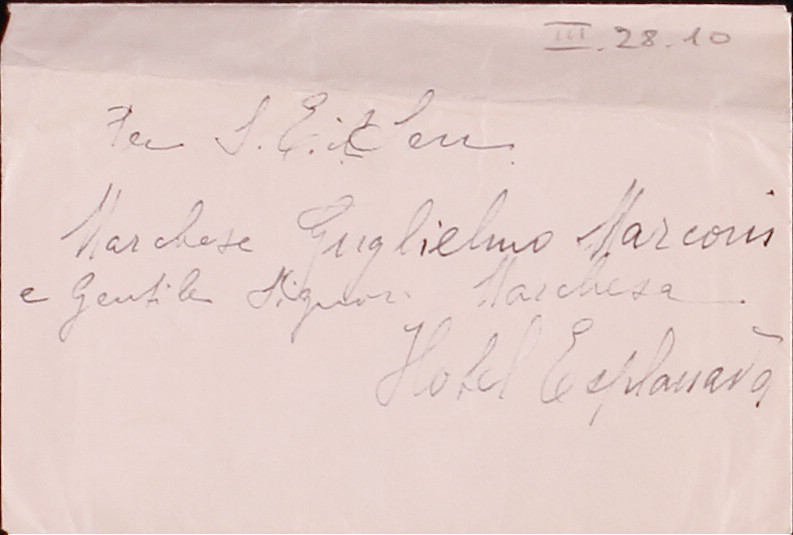 III.28.10
Per S. E. il Sen.
Marchese Guglielmo Marconi
e Gentile Signor. Marchesa
Hotel Esplanada